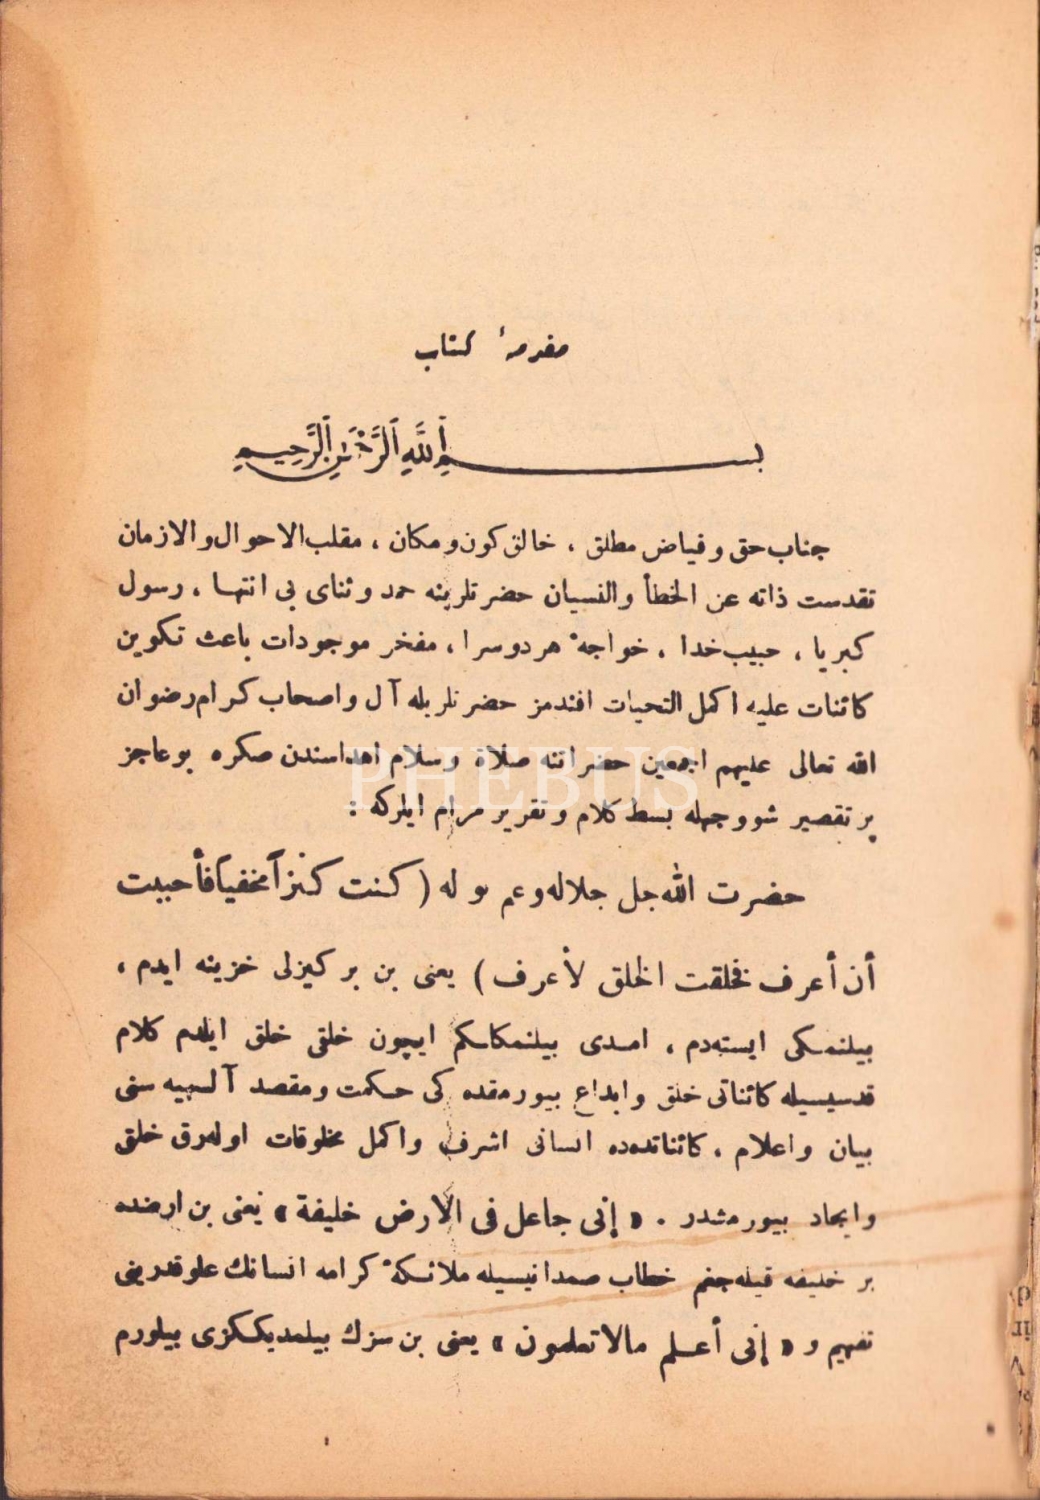 مقدمهٔ كتاب
بسم اللّٰه الرَّحمٰن الرَّحيم
جناب حق وفياض مطلق ، خالق كون ومكان ، مقلب الاحوال والازمان
تقدست ذاته عن الخطأ والنسيان حضرتلرينه حمد وثناى بى انتها ، رسول
كبريا ، حبيب خدا ، خواجهٔ هردوسرا ، مفخر موجودات باعث تكوين
كائنات عليه اكمل التحيات افندمز حضرتلريله آل واصحاب كرام رضوان
الله تعالى عليهم اجمعين حضراتنه صلاة وسلام اهداسندن صكره بوعاجز
پرتقصير شووجهله بسط كلام وتقرير مرام ايلركه :
حضرت الله جل جلاله وعم نواله ( كنت كنزاً مخفيا فأحببت
أن أعرف فخلقت الخلق لأعرف ) يعنى بن بر كيزلى خزينه ايدم ،
بيلنمكى ايسته‌دم ، امدى بيلنمكلكم ايچون خلقى خلق ايلدم كلام
قدسيسيله كائناتى خلق وابداع بيورمقده كى حكمت ومقصد آلهيه سنى
بيان واعلام ، كائناتده‌ده انسانى اشرف واكمل مخلوقات اوله‌رق خلق
وايجاد بيورمشدر . « إنى جاعل فى الارض خليفة » يعنى بن ارضده
بر خليفه قيله‌جغم خطاب صمدانيسيله ملائكهٔ كرامه انسانك علوقدرينى
تفهيم و « إنى أعلم مالاتعلمون » يعنى بن سزك بيلمديككزى بيلورم
PHEBUS